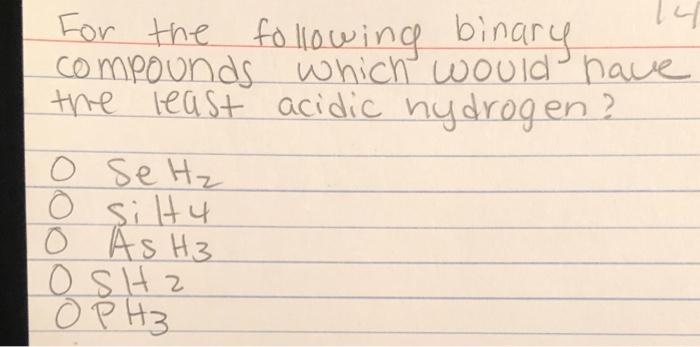 14
For the following binary
compounds which would have
the least acidic hydrogen?
O SeH2
O SiH4
O AsH3
O SH2
O PH3